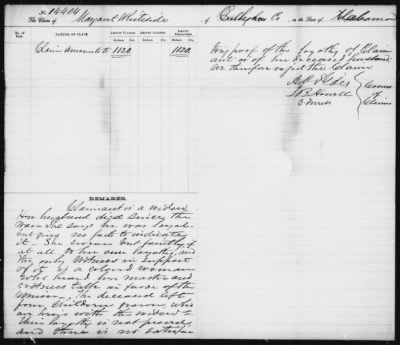 No. 14414
The Claim of Margaret Whiteside of County, in the State of Alabama
No. of Item. NATURE OF CLAIM. AMOUNT CLAIMED. AMOUNT ALLOWED. AMOUNT DISALLOWED.
Dolls. Cts. Dolls. Cts. Dolls. Cts.
Claim amounts to 1120. 1120.
REMARKS.
Claimant is a widow
Her husband died since the
War she says he was loyal
but gives no facts to indicate
it. She swears but faintly if
at all to her own loyalty, and
the only witness in support
of it is a colored woman
who heard her master and
mistress talk in favor of the
Union. The deceased left
four children grown, who
are heirs with the widow
their loyalty is not proved,
and there is no satisfac
tory proof of the loyalty of Claim
ant or of her deceased husband
We therefore reject the Claim
A. O. Aldis
J B Howell
O Ferriss
Comrs
of
Claims